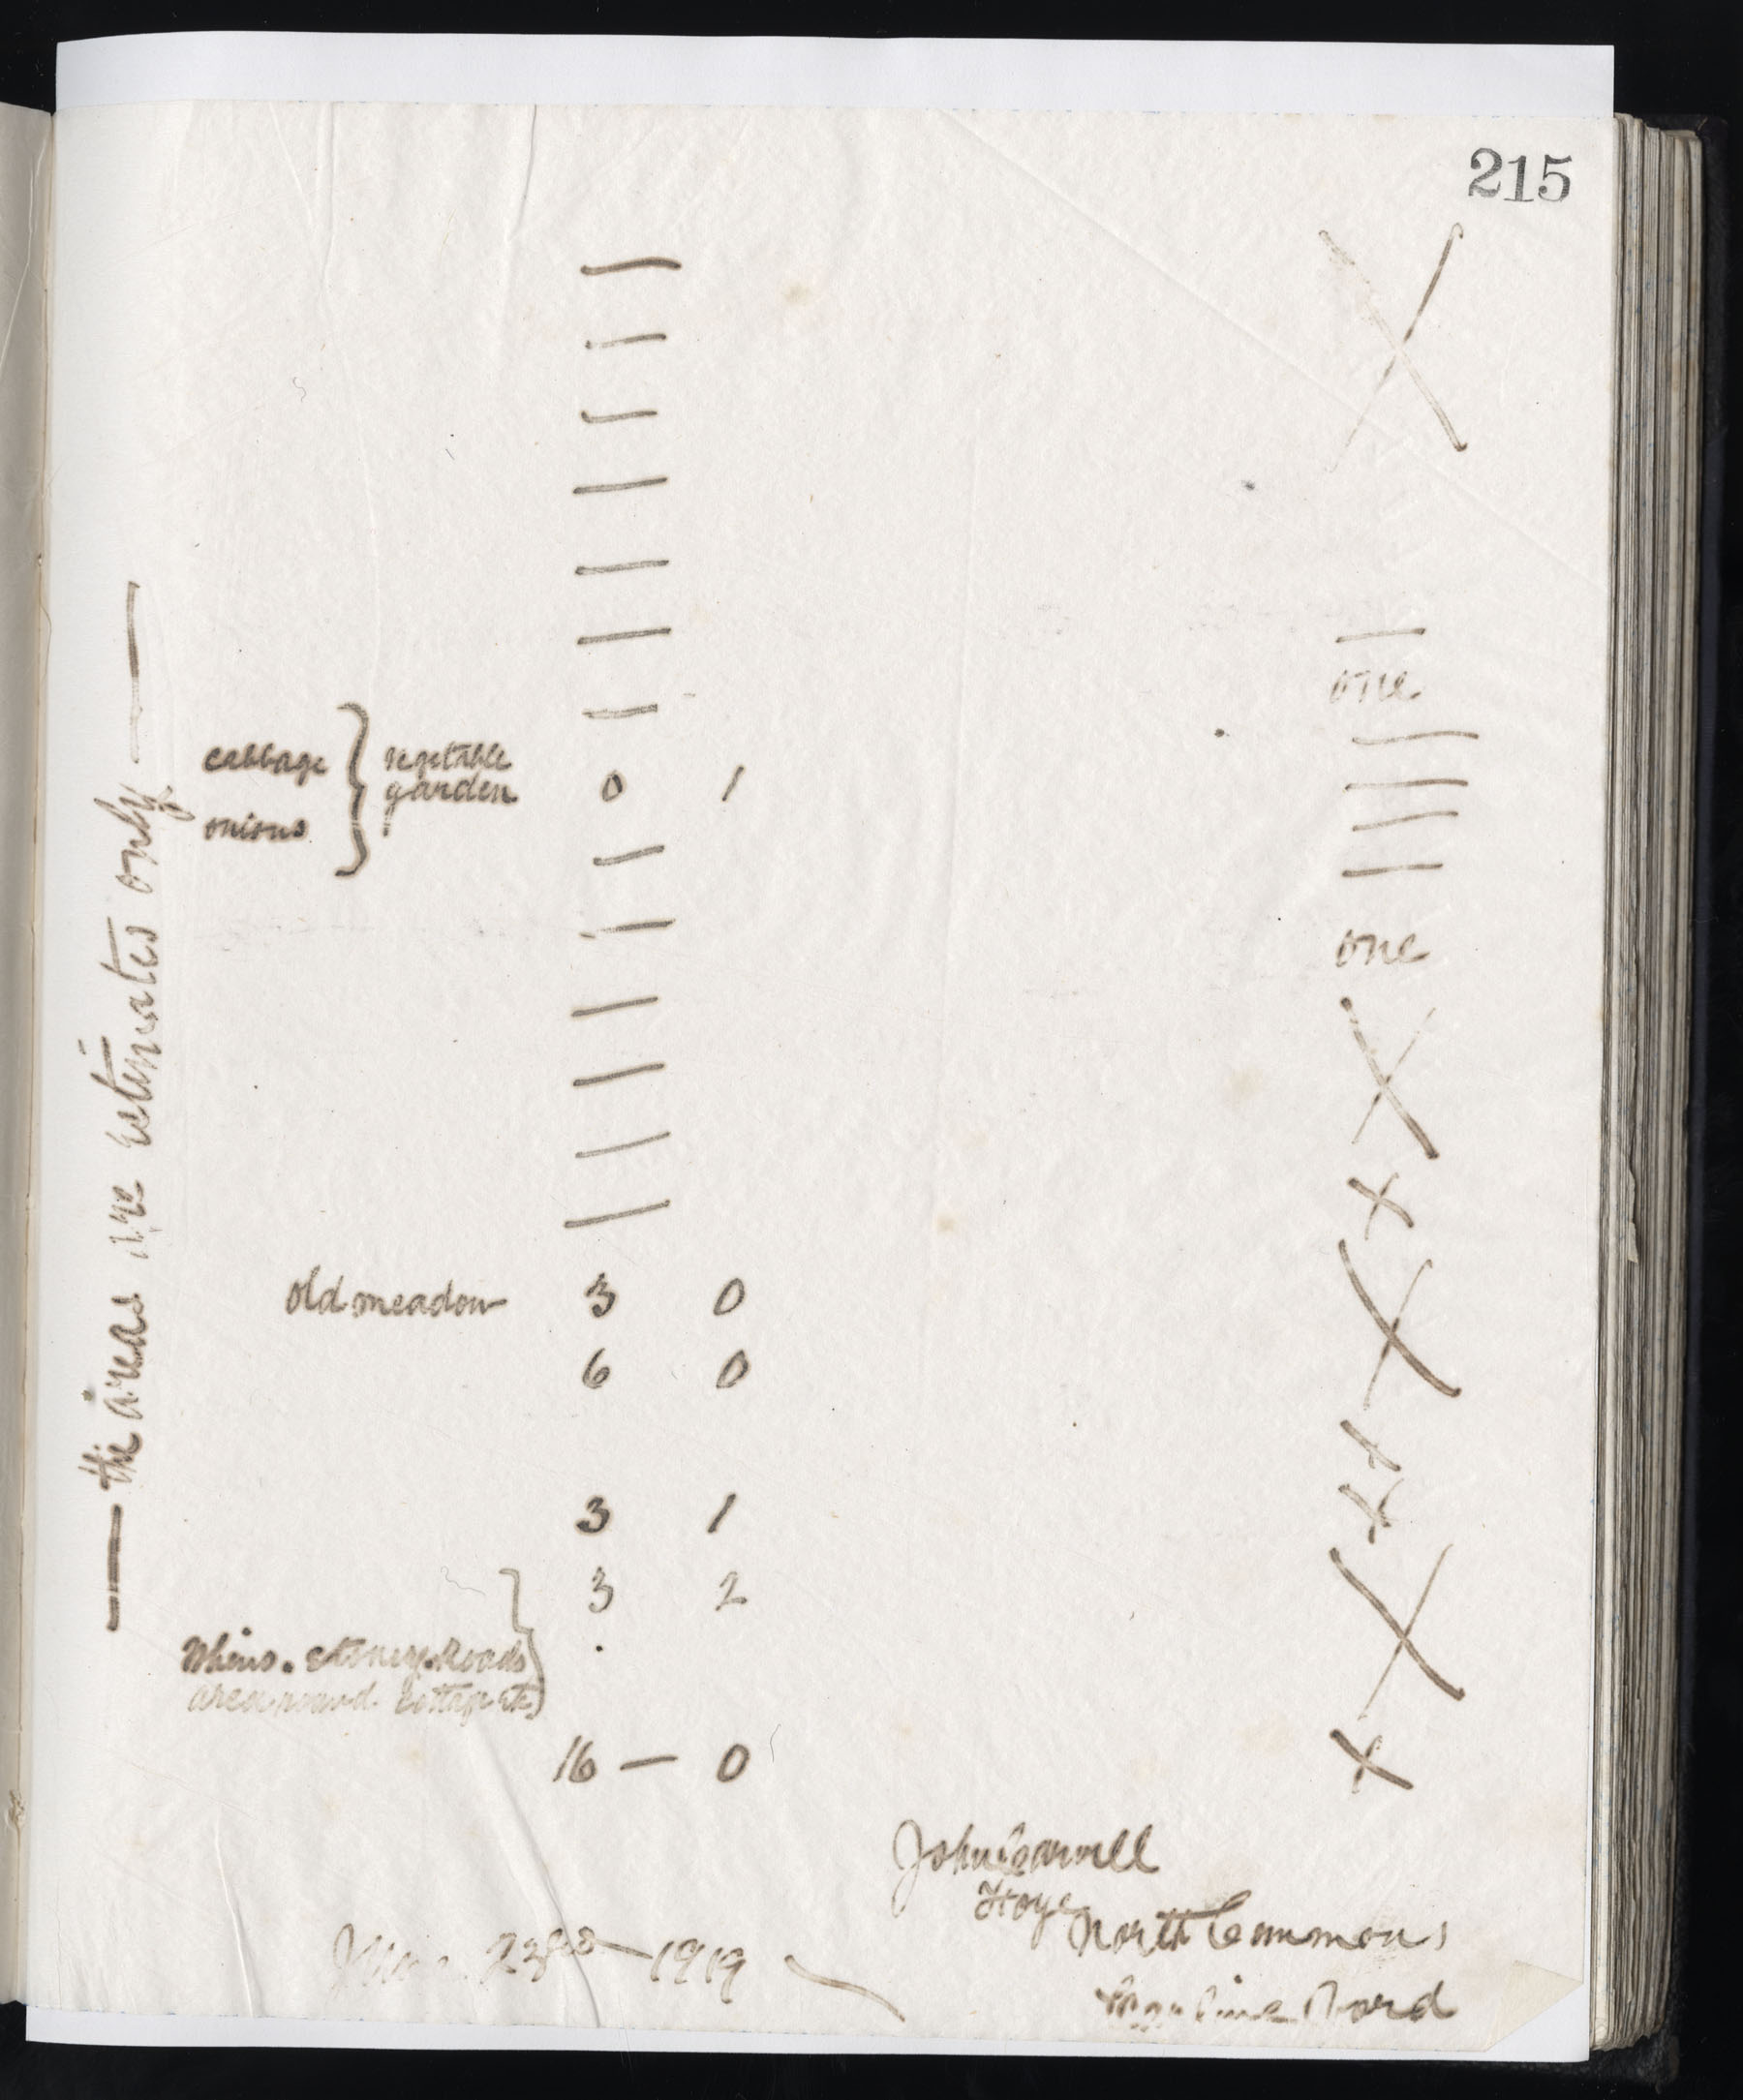 215
—
—
—
—
—
—
—
one
—
cabbage } vegetable
garden 0 1
onions
—
—
—
—
—
one
—
—
—
—
—
X
X
+
X
+
+
X
+
— the areas are estimates only —
old meadow 3 0
6 0
3 1
3 2
Whins. stoney. Roads
area round Cottage etc
16 — 0
John
Hoye
North Commons
Road
June 23rd — 1919